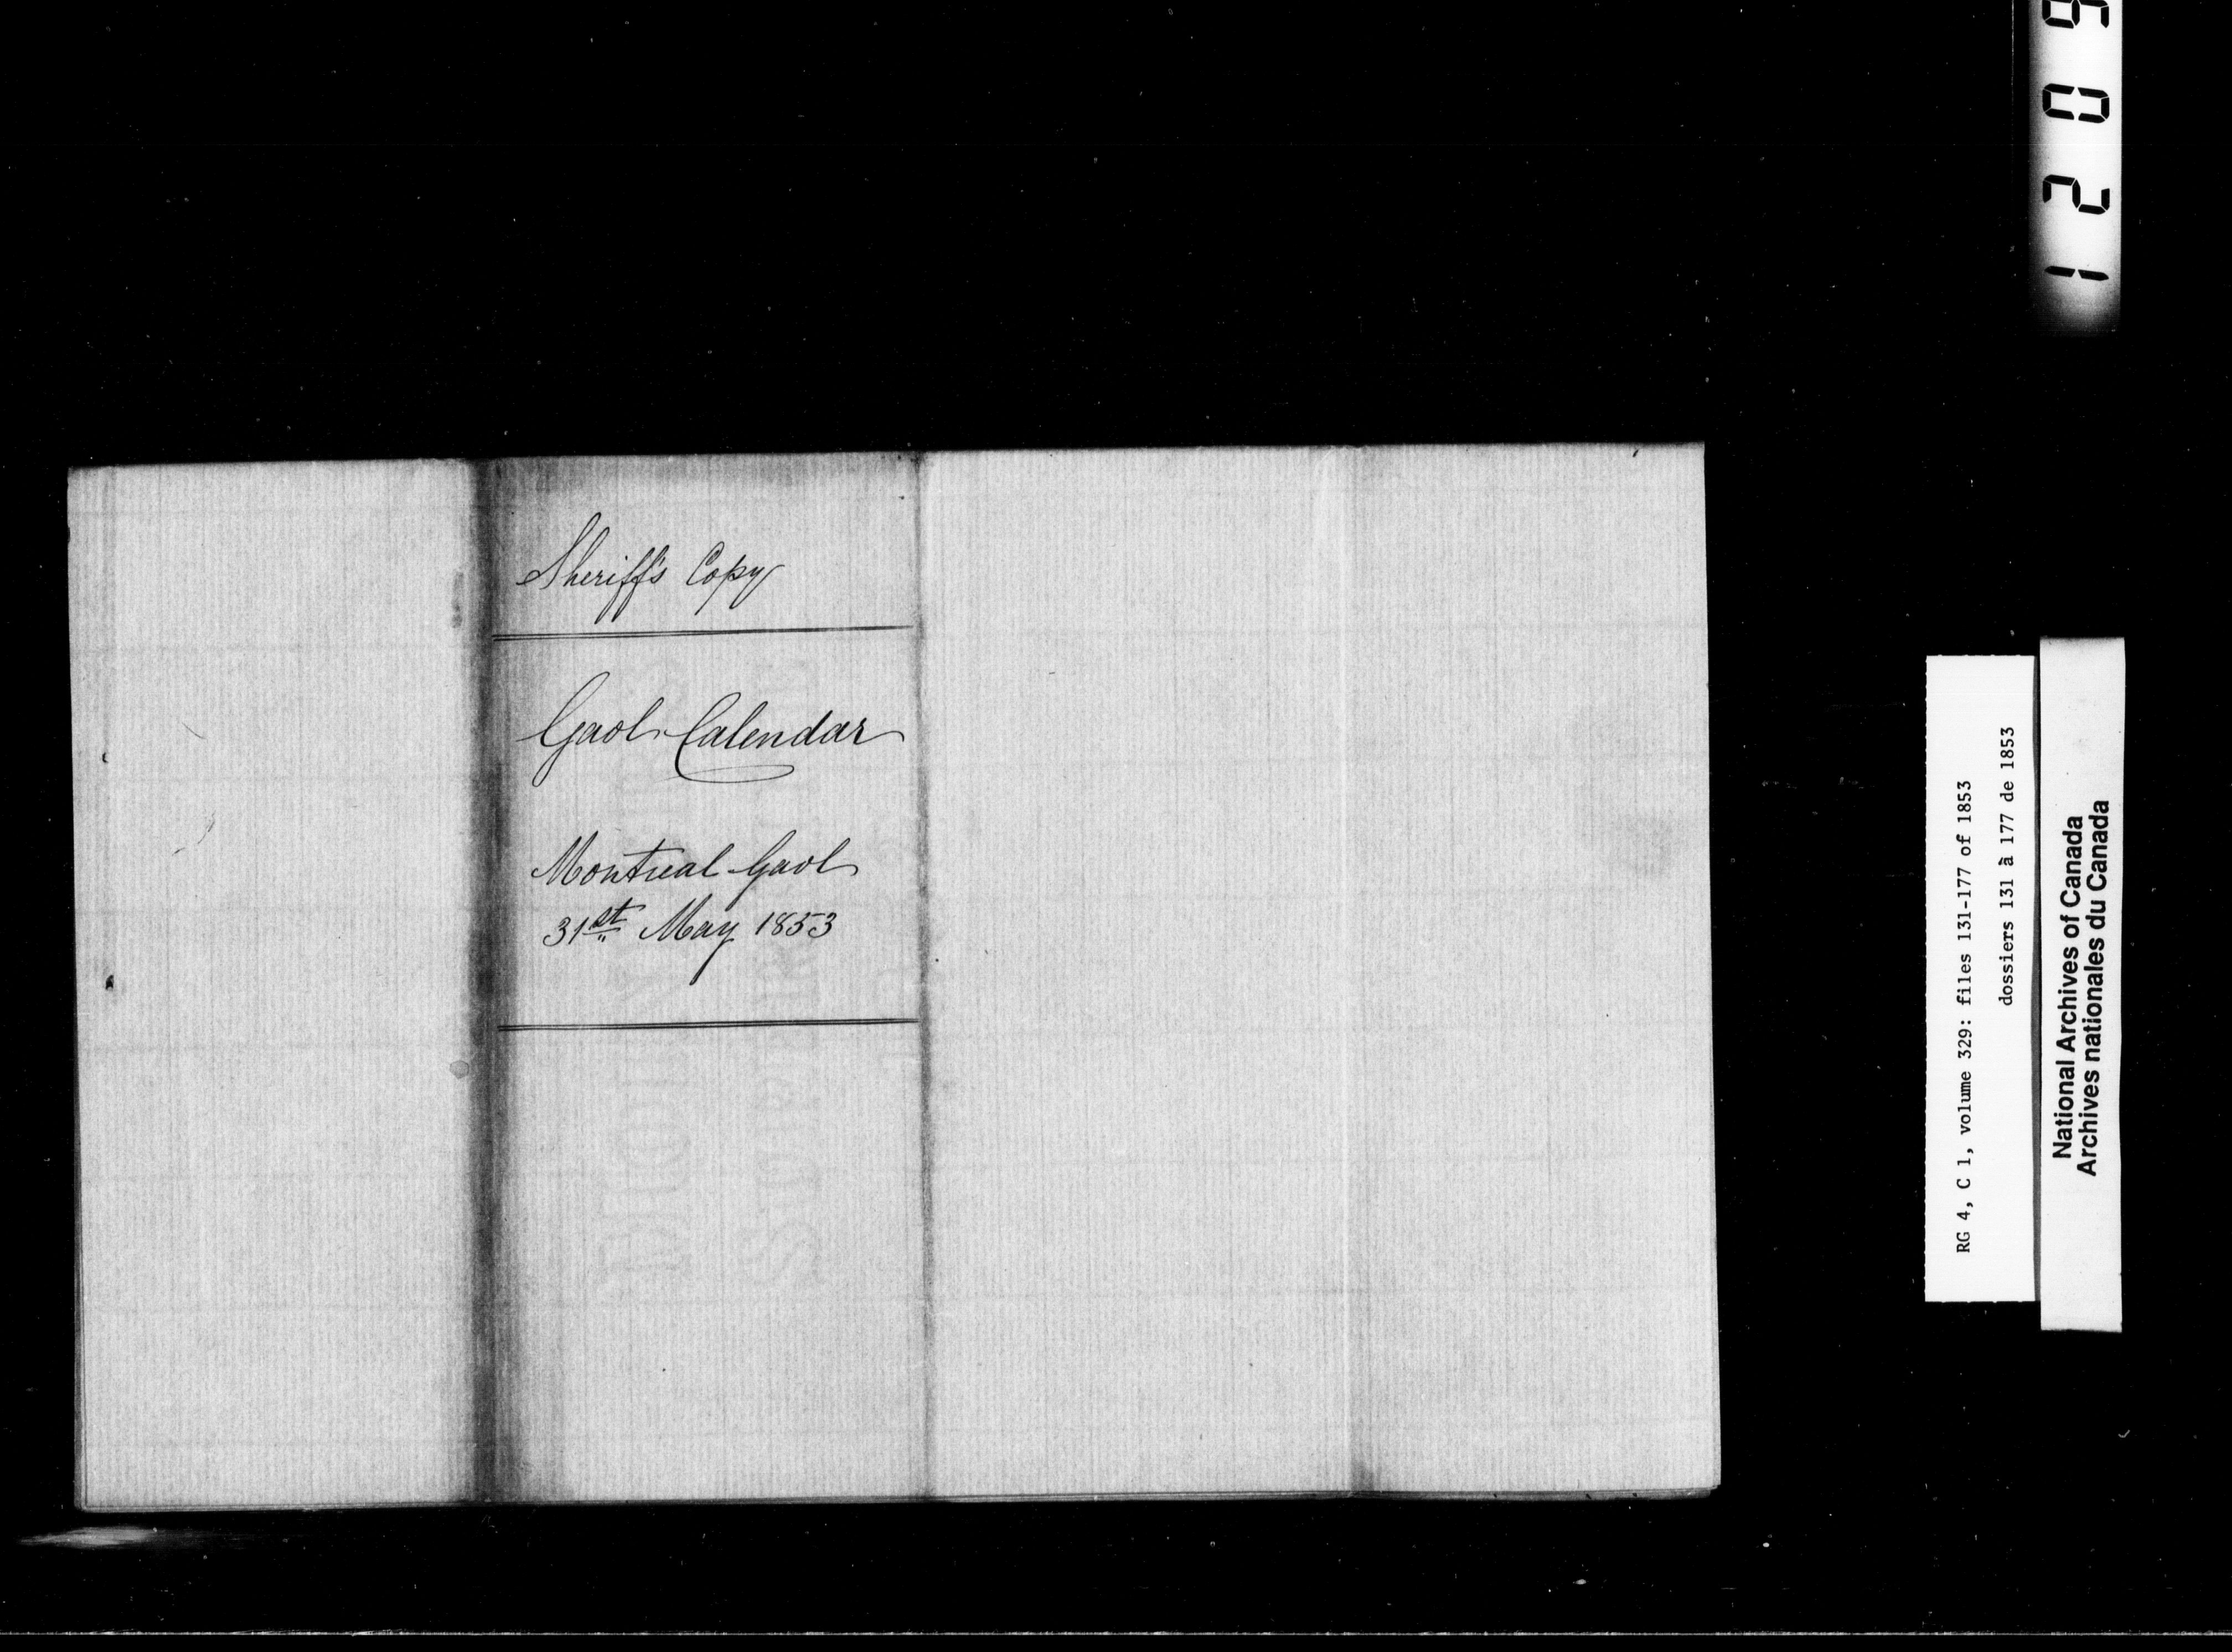 Sheriff's Copy
Gaol Calendar
Montreal Gaol
31st May 1853
RG 4, C 1, volume 329: files 131-177 of 1853
dossiers 131 à 177 de 1853
National Archives of Canada
Archives nationales du Canada
1209